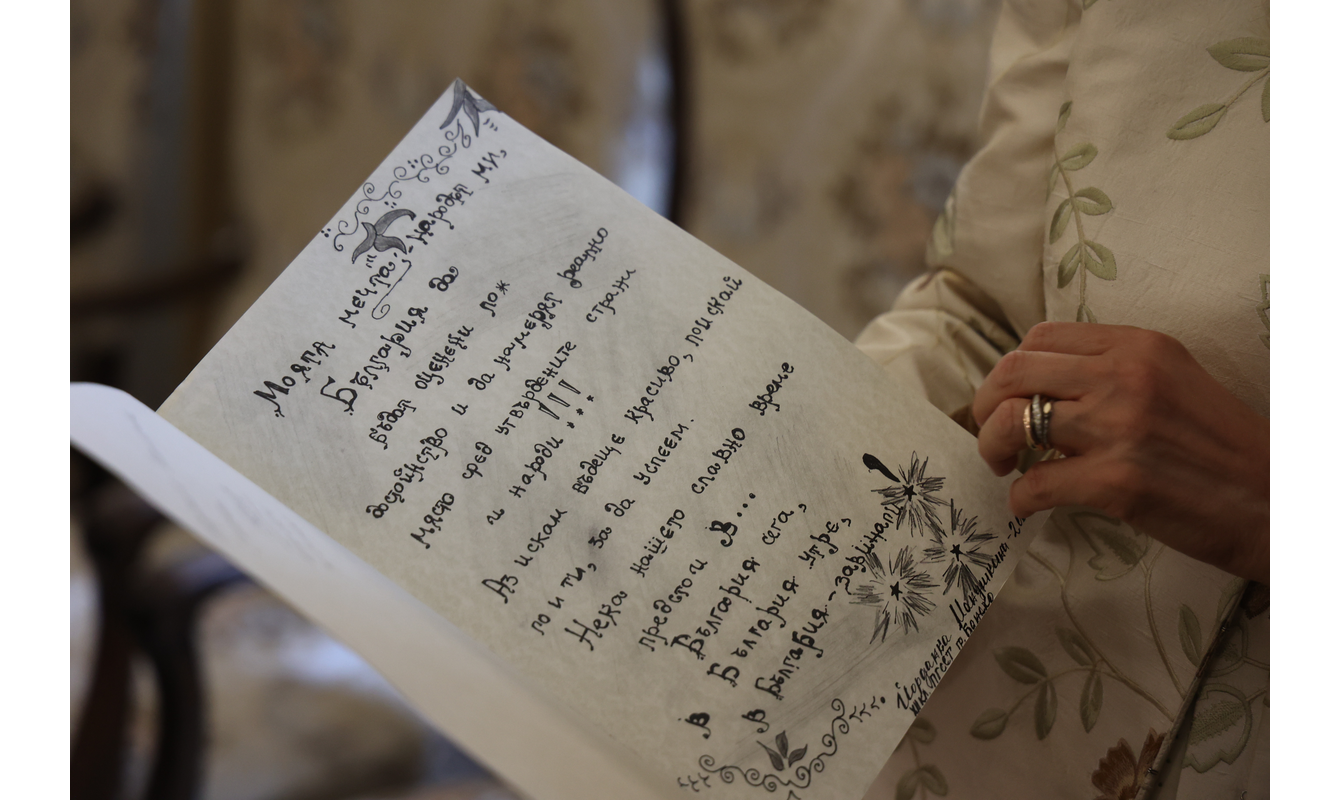 „Моята мечта“ - народът ми,
България да
бъдат оценени по
достойнство и да намерят реално
място сред утвърдените страни
и народи!!!
Аз искам бъдеще красиво, поискай
го и ти, за да успеем.
Нека нашето славно време
предстои в...
България сега,
В България утре,
В България - завинаги
Йорданка